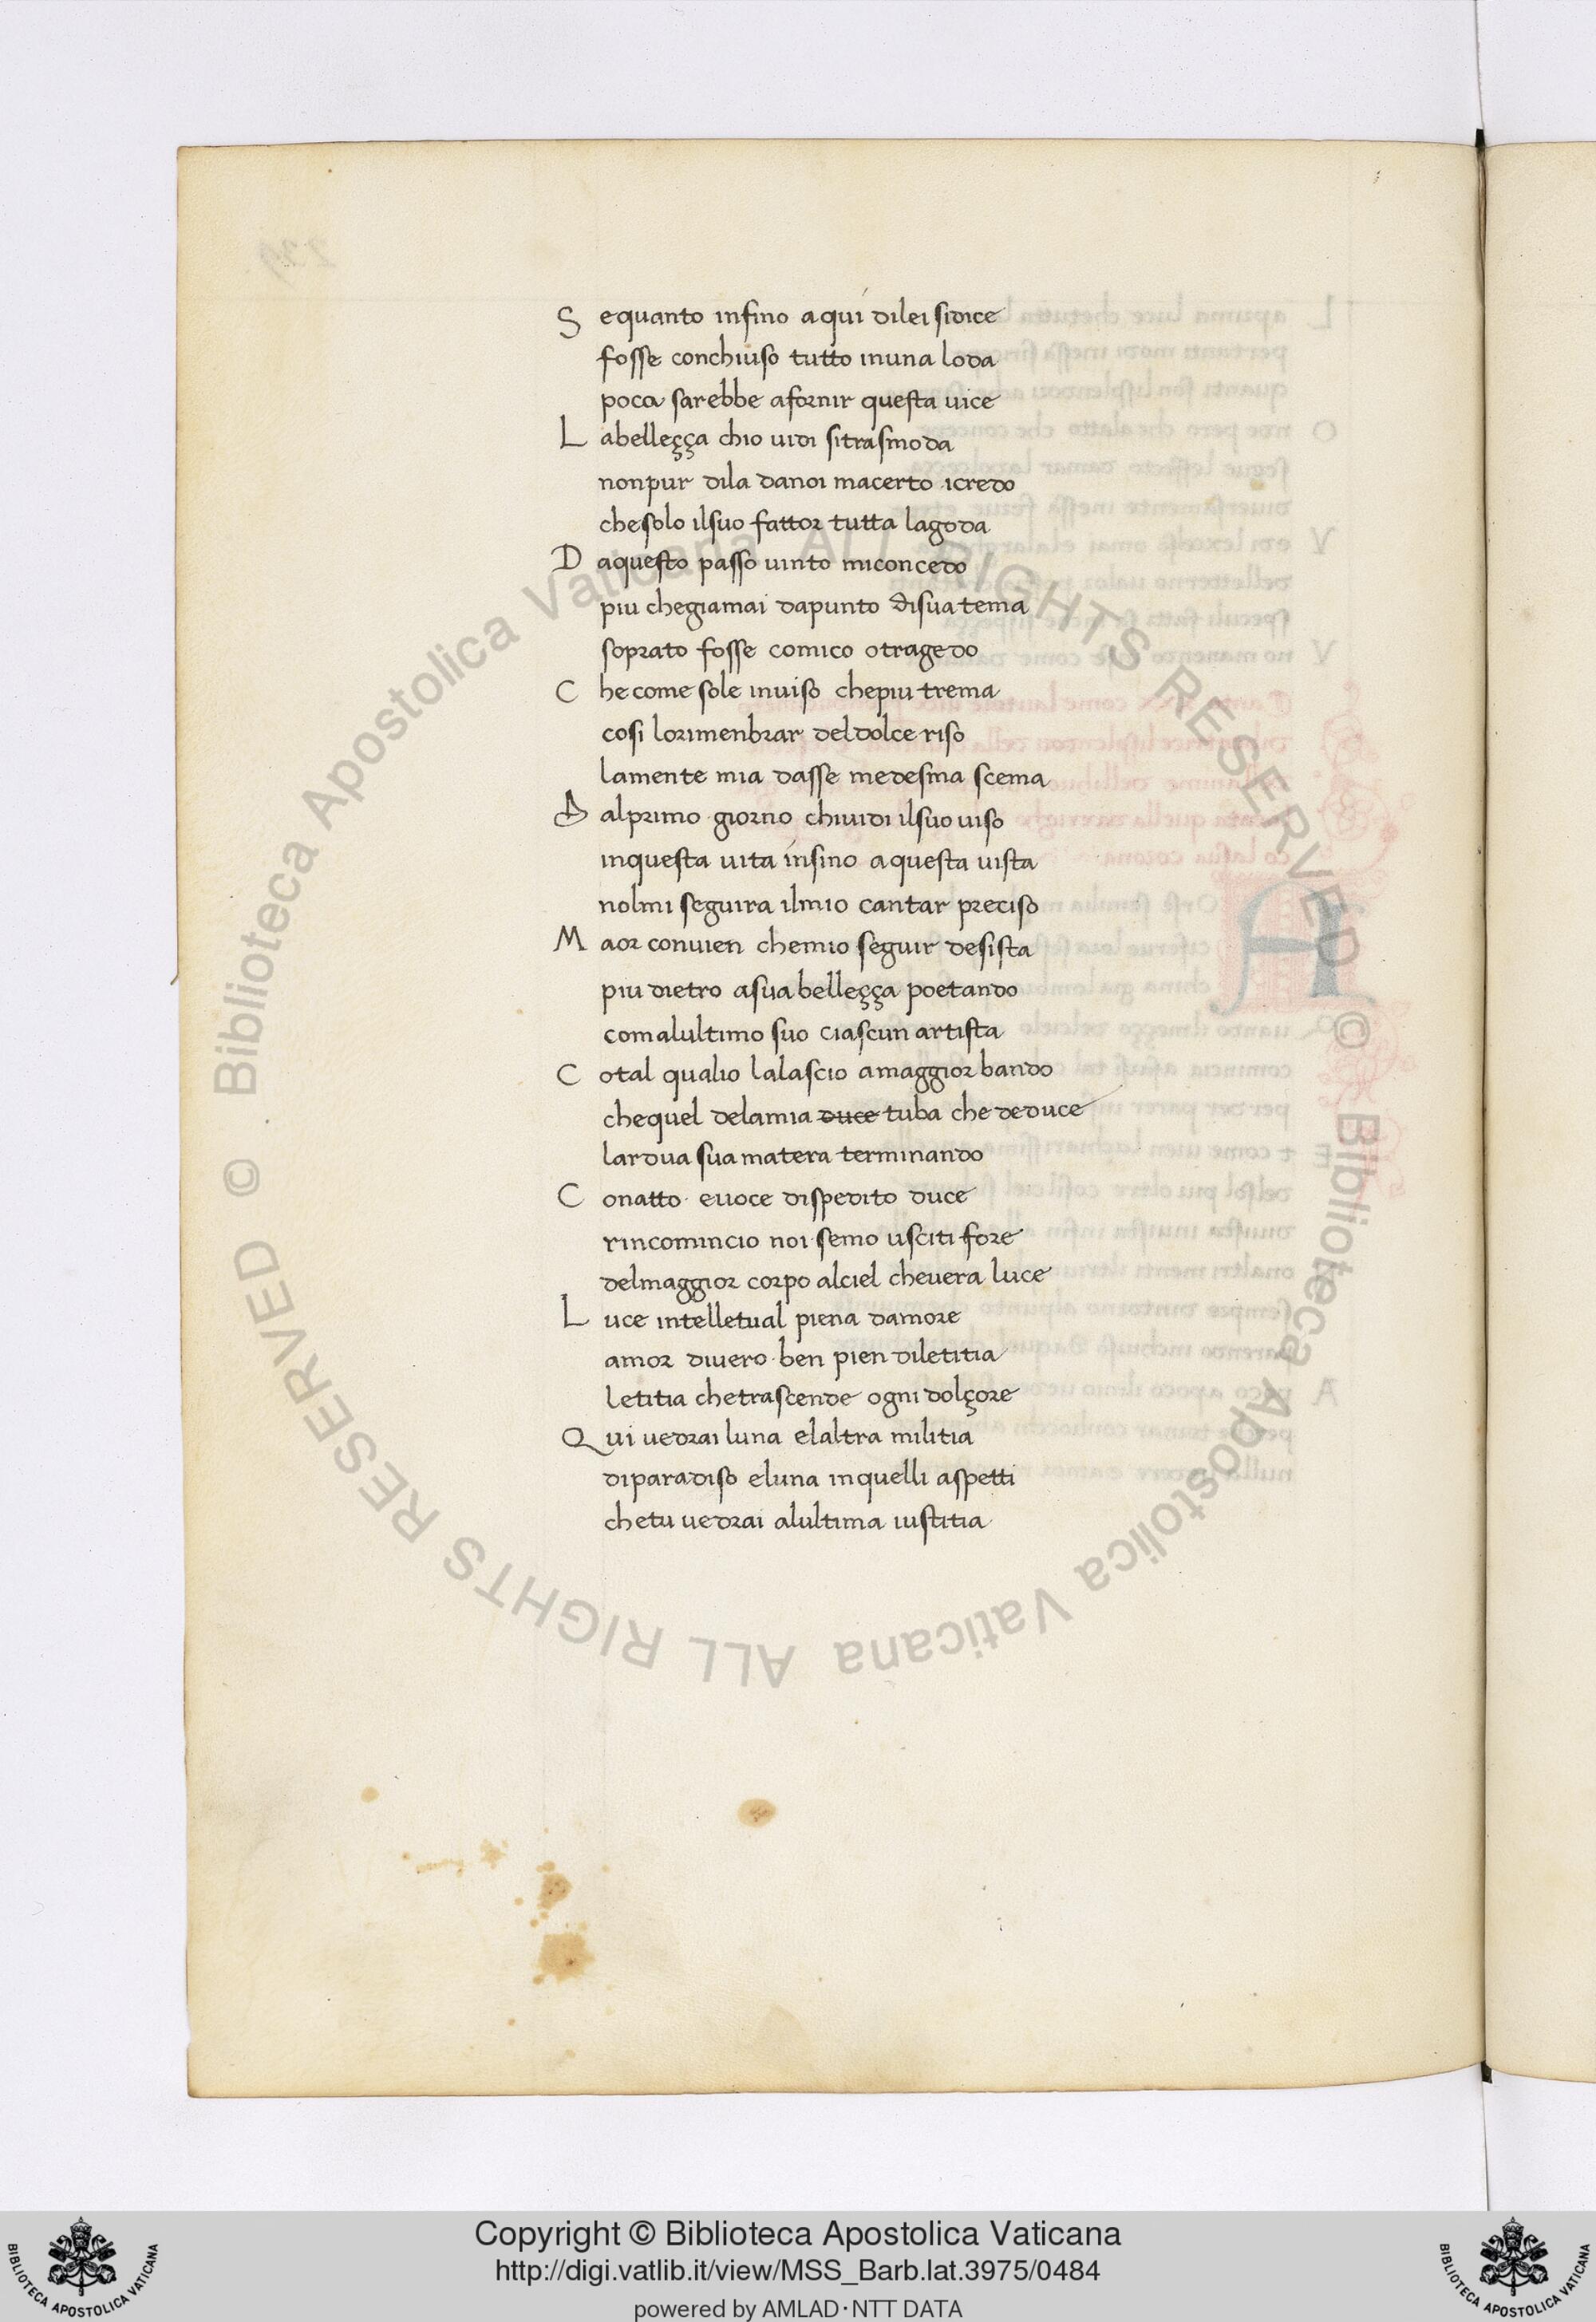 S equanto infino aqui dilei sidice
fosse conchiuso tutto inuna loda
poca sarebbe afornir questa uice
L abelleçça chio uidi sitrasmoda
nonpur dila danoi macerto icredo
chesolo ilsuo fattor tutta lagoda
D aquesto passo uinto miconcedo
piu chegiamai dapunto disua tema
soprato fosse comico otragedo
C he come sole inuiso chepiu trema
cosi lorimenbrar deldolce riso
lamente mia dasse medesma scema
D alprimo giorno chiuidi ilsuo uiso
inquesta uita insino aquesta uista
nolmi seguira ilmio cantar preciso
M aor conuien chemio seguir desista
piu dietro asua belleçça poetando
comalultimo suo ciascun artista
C otal qualio lalascio amaggior bando
chequel delamia duce tuba che deduce
lardua sua matera terminando
C onatto euoce dispedito duce
rincomincio noi semo usciti fore
delmaggior corpo alciel cheuera luce
L uce intelletual piena damore
amor diuero ben pien diletitia
letitia chetrascende ogni dolçore
Q ui uedrai luna elaltra militia
diparadiso eluna inquelli aspetti
chetu uedrai alultima iustitia
© Biblioteca Apostolica Vaticana ALL RIGHTS RESERVED
© Biblioteca Apostolica Vaticana ALL RIGHTS RESERVED
Copyright © Biblioteca Apostolica Vaticana
http://digi.vatlib.it/view/MSS_Barb.lat.3975/0484
powered by AMLAD·NTT DATA
BIBLIOTECA APOSTOLICA VATICANA
BIBLIOTECA APOSTOLICA VATICANA